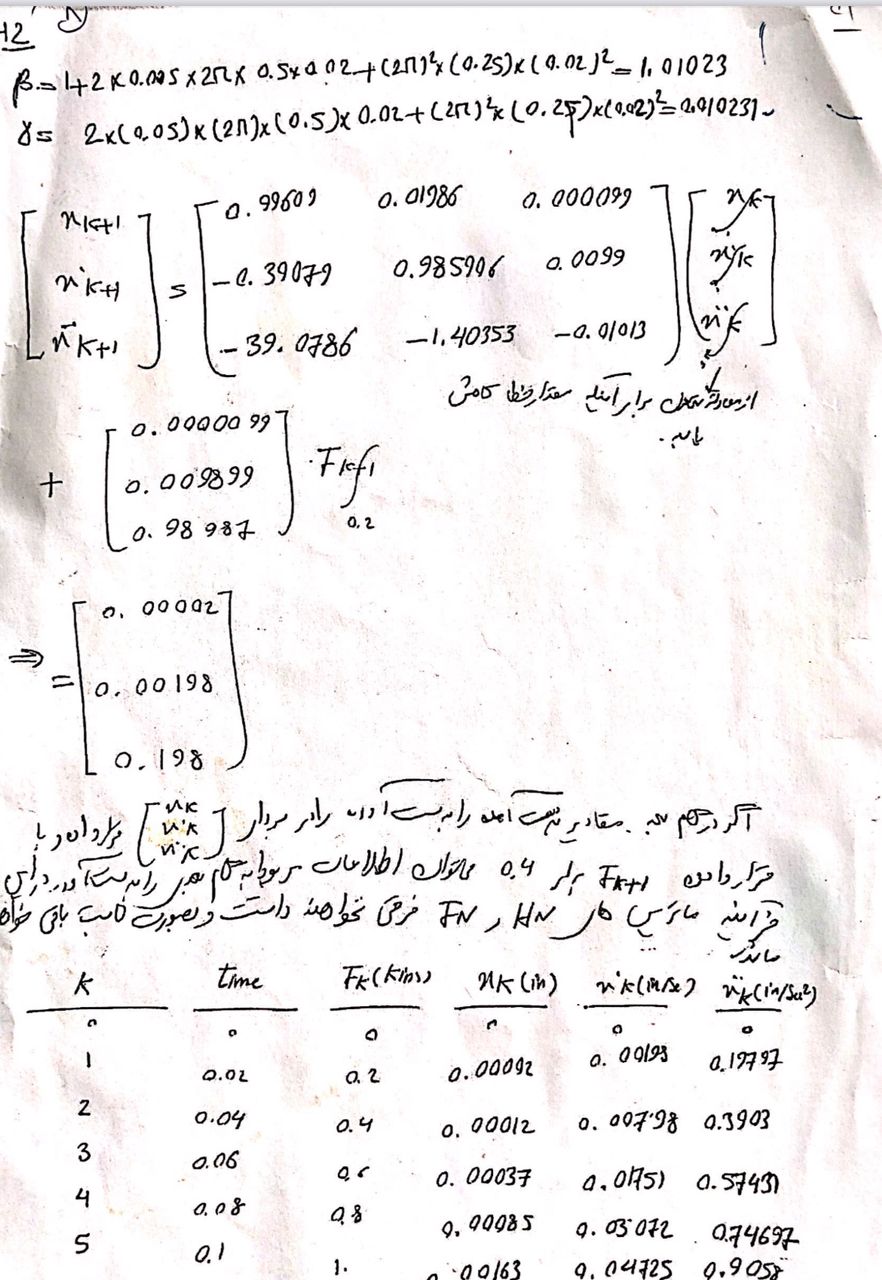 β = 1+2×0.005×2π×0.5×0.02+(2π)²×(0.25)×(0.02)² = 1.01023
γ = 2×(0.05)×(2π)×(0.5)×0.02+(2π)²×(0.25)×(0.02)² = 0.010231
[xk+1 ẋk+1 ẍk+1] = [0.99609 0.01986 0.000099
-0.39079 0.985906 0.0099
-39.0786 -1.40353 -0.01013] [xk ẋk ẍk]
مقدار خطا کاهش
یابد.
+ [0.0000099 0.009899 0.98987] · Fk+1
0.2
⇒ = [0.00002 0.00198 0.198]
اگر در گام مقادیر بدست آمده را بدست آورده را در بردار [xk ẋk ẍk] قرار داده و با
قرار دادن Fk+1 برابر 0.4 میتوان اطلاعات مربوط به گام را بدست آورد در این
فرآیند ماتریس های HN و FN فرقی نخواهند داشت و بصورت ثابت باقی خواهند
ماند.
k time Fk(Kips) xk(in) ẋk(in/Sec) ẍk(in/Sec²)
0 0 0 0 0 0
1 0.02 0.2 0.00002 0.00198 0.19797
2 0.04 0.4 0.00012 0.00798 0.3903
3 0.06 0.6 0.00037 0.01751 0.57431
4 0.08 0.8 0.00085 0.03072 0.74697
5 0.1 1. 0.00163 0.04725 0.9058